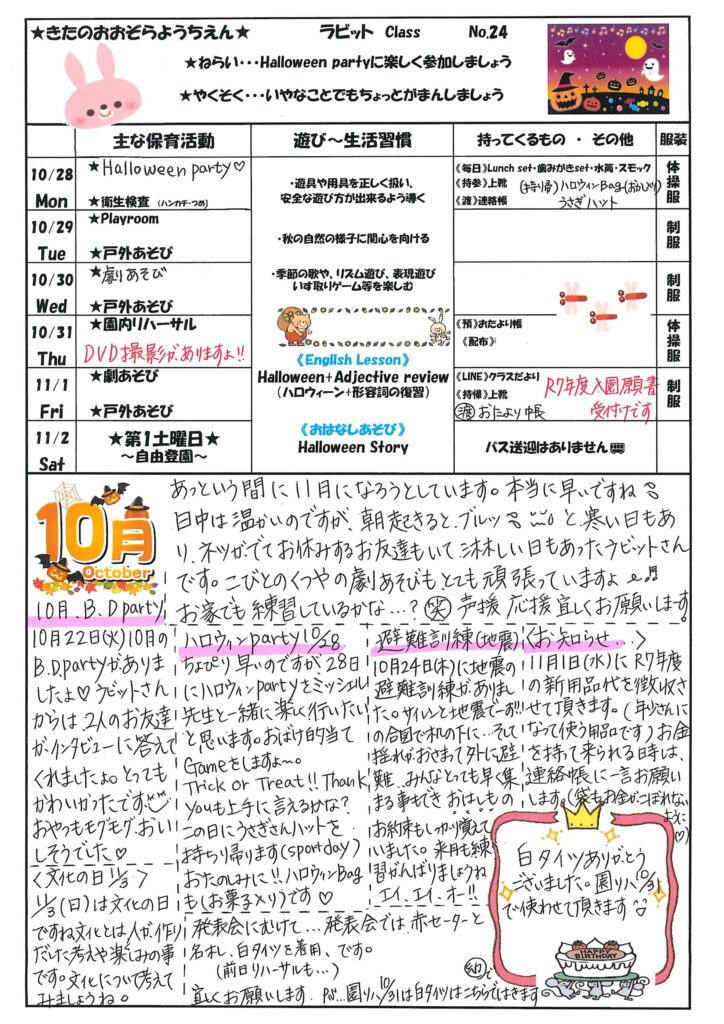 ★きたのおおぞらようちえん★
ラビット Class No.24
★ねらい・・・Halloween partyに楽しく参加しましょう
★やくそく・・・いやなことでもちょっとがまんしましょう
主な保育活動
遊び～生活習慣
持ってくるもの ・ その他
服装
10/28
Mon
★Halloween party♡
★衛生検査(ハンカチ・つめ)
・遊具や用具を正しく扱い、
安全な遊び方が出来るよう導く
《毎日》Lunch set・歯みがきset・水筒・スモック
《持参》上靴 (持ち帰)ハロウィンBag(おかしいり)
《渡》連絡帳 うさぎハット
体操服
10/29
Tue
★Playroom
★戸外あそび
・秋の自然の様子に関心を向ける
制服
10/30
Wed
★劇あそび
★戸外あそび
・季節の歌や、リズム遊び、表現遊び
いす取りゲーム等を楽しむ
制服
10/31
Thu
★園内リハーサル
DVD撮影がありますよ!!
《預》おたより帳
《配布》
体操服
《English Lesson》
Halloween+Adjective review
(ハロウィーン+形容詞の復習)
11/1
Fri
★劇あそび
★戸外あそび
《LINE》クラスだより
《持帰》上靴
渡 おたより帳
R7年度入園願書
受付けです
制服
11/2
Sat
★第1土曜日★
～自由登園～
《おはなしあそび》
Halloween Story
バス送迎はありません
10月
October
あっという間に11月になろうとしています。本当に早いですね
日中は温かいのですが、朝起きると、ブルッ と、寒い日もあ
り、ネツがでてお休みするお友達もいて、淋しい日もあったラビットさん
です。こびとのくつやの劇あそびもとても頑張っていますよ
お家でも練習しているかな…? 笑 声援 応援 宜しくお願いします
10月.B.D party
10月22日(火)10月の
B.D.partyがありま
したよ♡ラビットさん
からは、2人のお友達
がインタビューに答えて
くれましたよ。とっても
かわいかったです
おやつもモグモグ。おい
しそうでした♡
ハロウィンparty 10/28
ちょぴり早いのですが、28日
にハロウィンpartyをミッシェル
先生と一緒に楽しく行いたい
と思います。おばけ的当て
Gameをしますよ～
Trick or Treat!! Thank
youも上手に言えるかな?
この日にうさぎさんハットを
お持ち帰ります(sportday)
おたのしみに!!ハロウィンBag
も(お菓子入り)です♡
避難訓練(地震)
10月24日(木)に地震の
避難訓練がありまし
た。サイレンと地震でーす!!
の合図で机の下に…そして
揺れがおさまって外に避
難。みんなとっても早く集
まる事もでき おはしもの
お約束もしっかり覚えて
いました。来月も練
習がんばりましょうね
エイ、エイ、オー!!
〈お知らせ…〉
11月1日(水)に R7年度
の新用品代を徴収さ
せて頂きます。(年少さんに
なって使う用品です)お金
を持って来られる時は、
連絡帳に一言お願い
します。(袋もお金がこぼれない
ように♡)
白タイツありがとう
ございました。園リハ(10/31)
で使わせて頂きます
HAPPY
BIRTHDAY
〈文化の日 11/3〉
11/3(日)は文化の日
ですね文化とは人が作り
だした考えや楽しみの事
です。文化について考えて
みましょうね。
発表会にむけて…発表会では、赤セーターと
名札、白タイツを着用、です。
(前日リハーサルも…)
宜しくお願いします。PS…園リハ 10/31は白タイツはこちらではきます